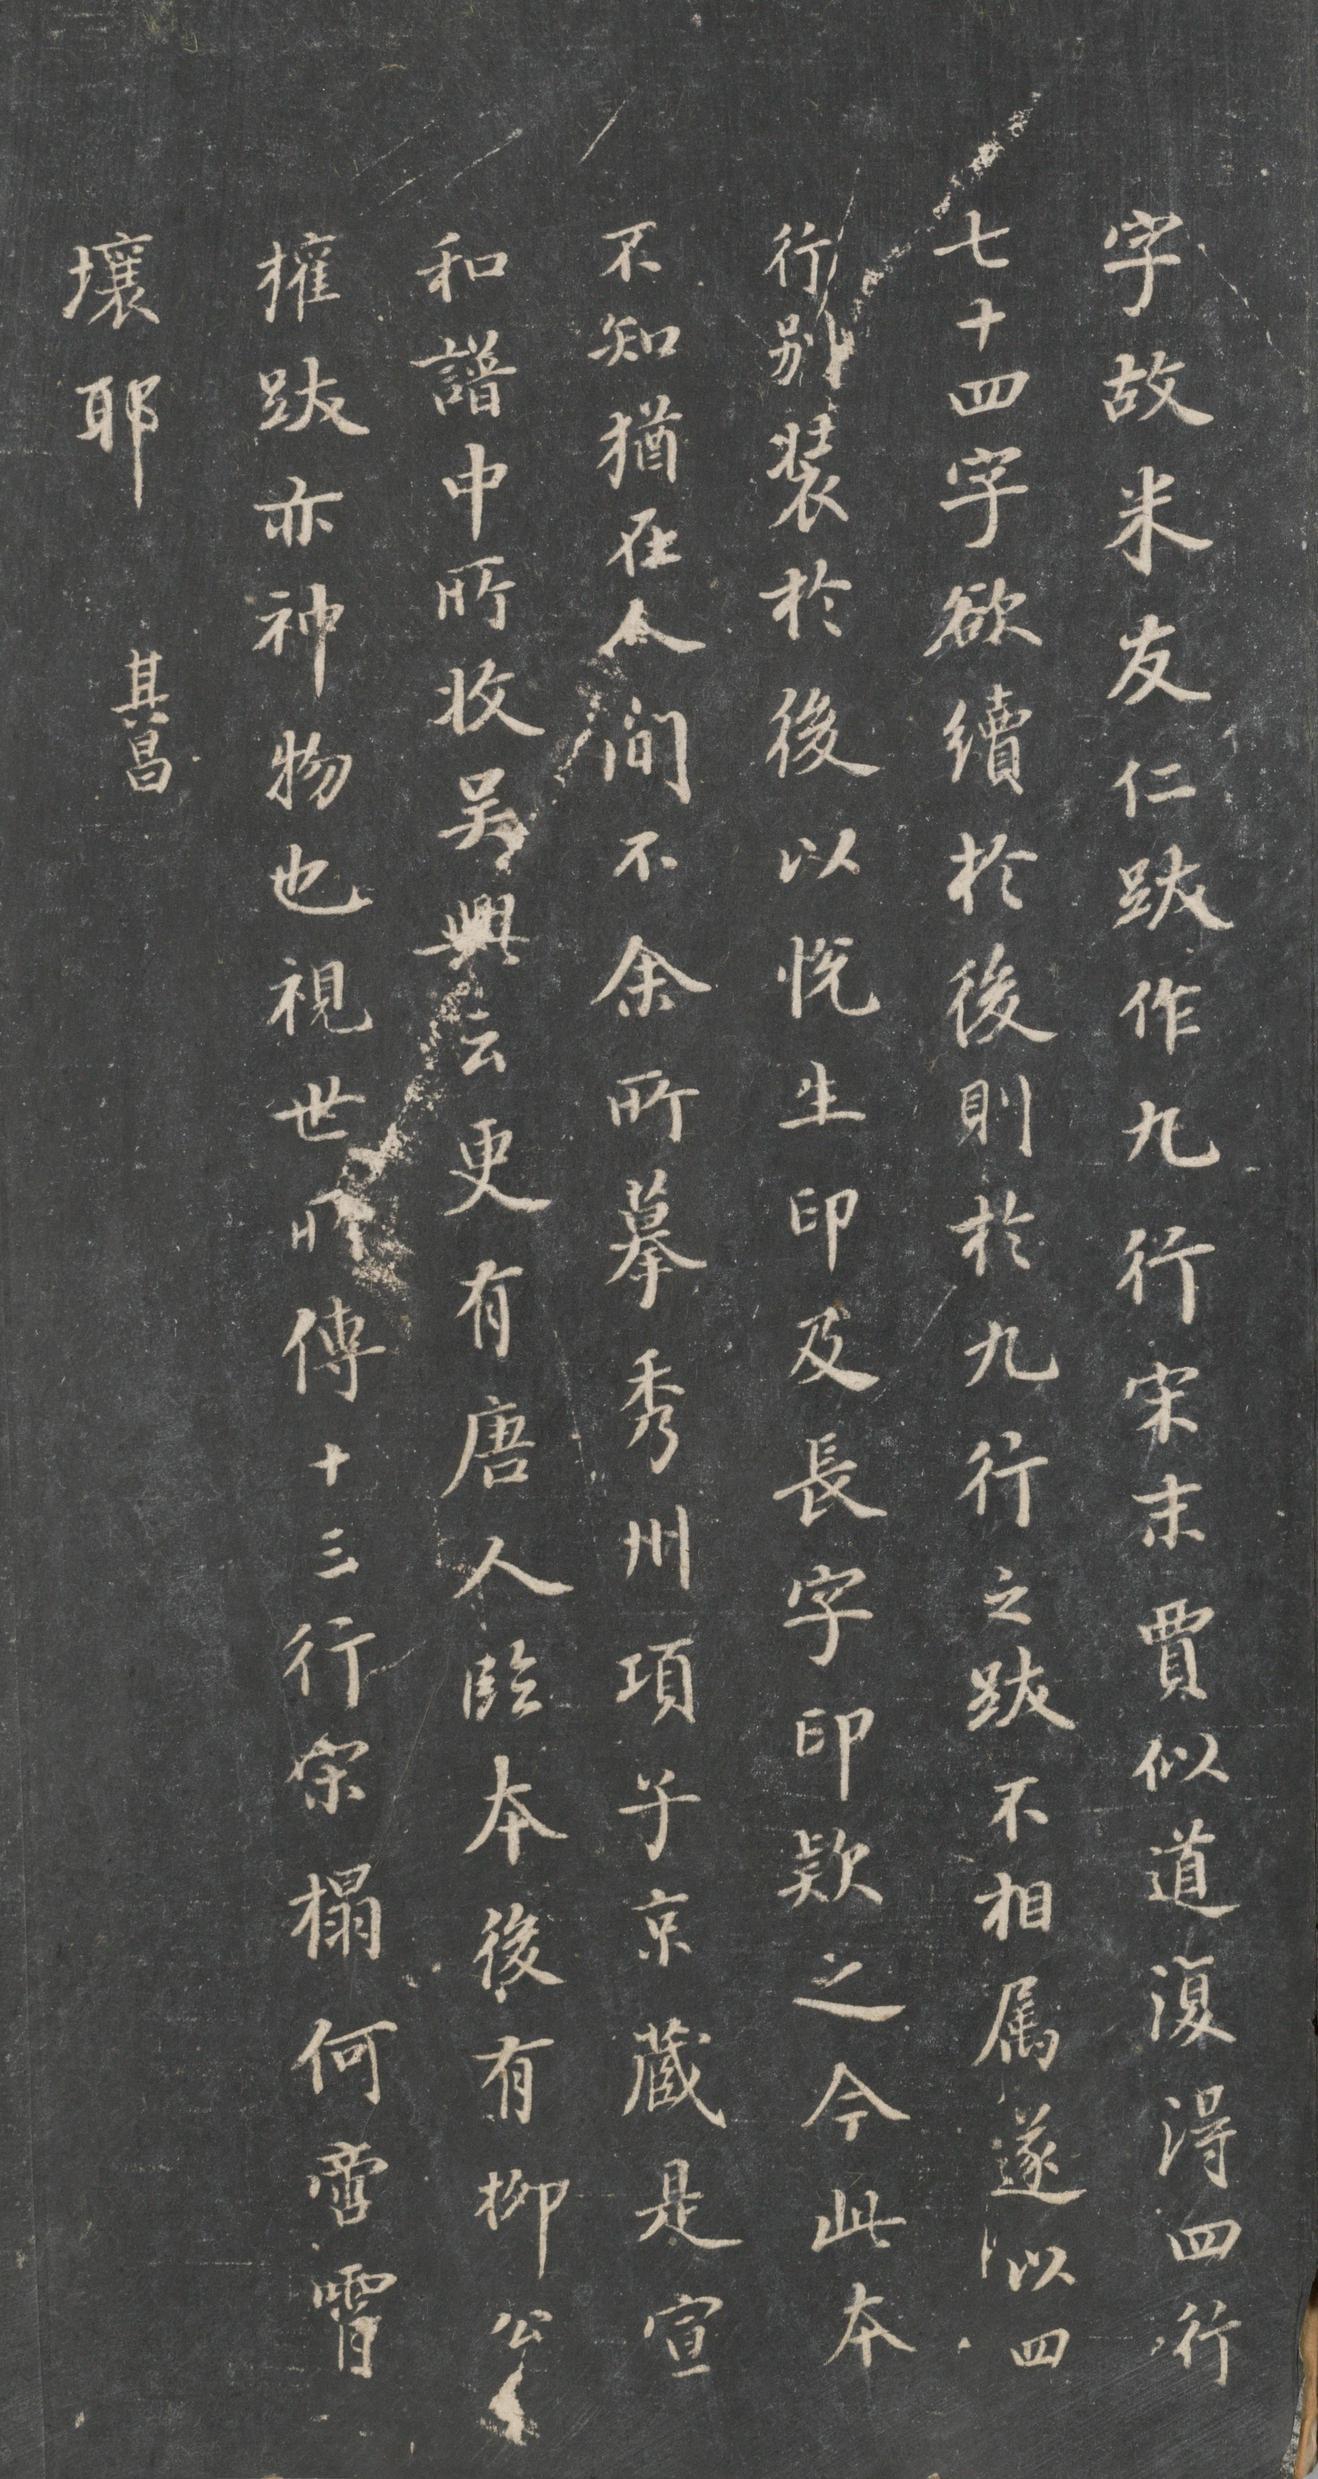 字故米友仁跋作九行宋末賈似道復得四行
七十四字欲續於後則於九行之跋不相属遂以四
行別裝於後以悅生印及長字印款之今此本
不知猶在人間不余所摹秀州項子京藏是宣
和譜中所收吳興云更有唐人臨本後有柳公
擁跋亦神物也視世所傳十三行宋榻何啻霄
壤耶 其昌